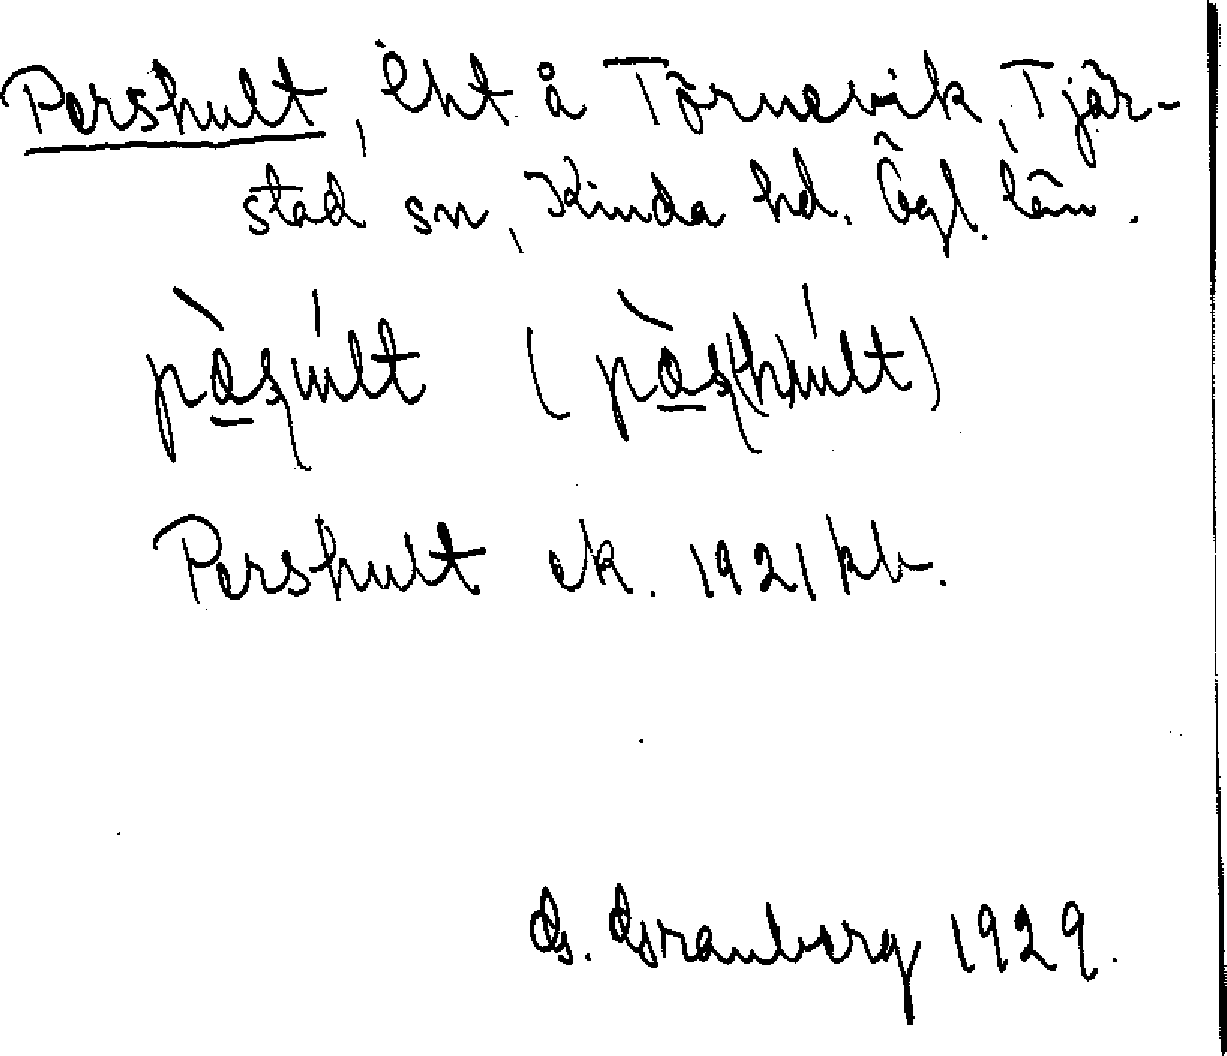 Pershult, lht å Törnevik, Tjär-
stad sn, Kinda hd. Ögl. län.
Pershult ek. 1921 kb.
G. Granberg 1929.